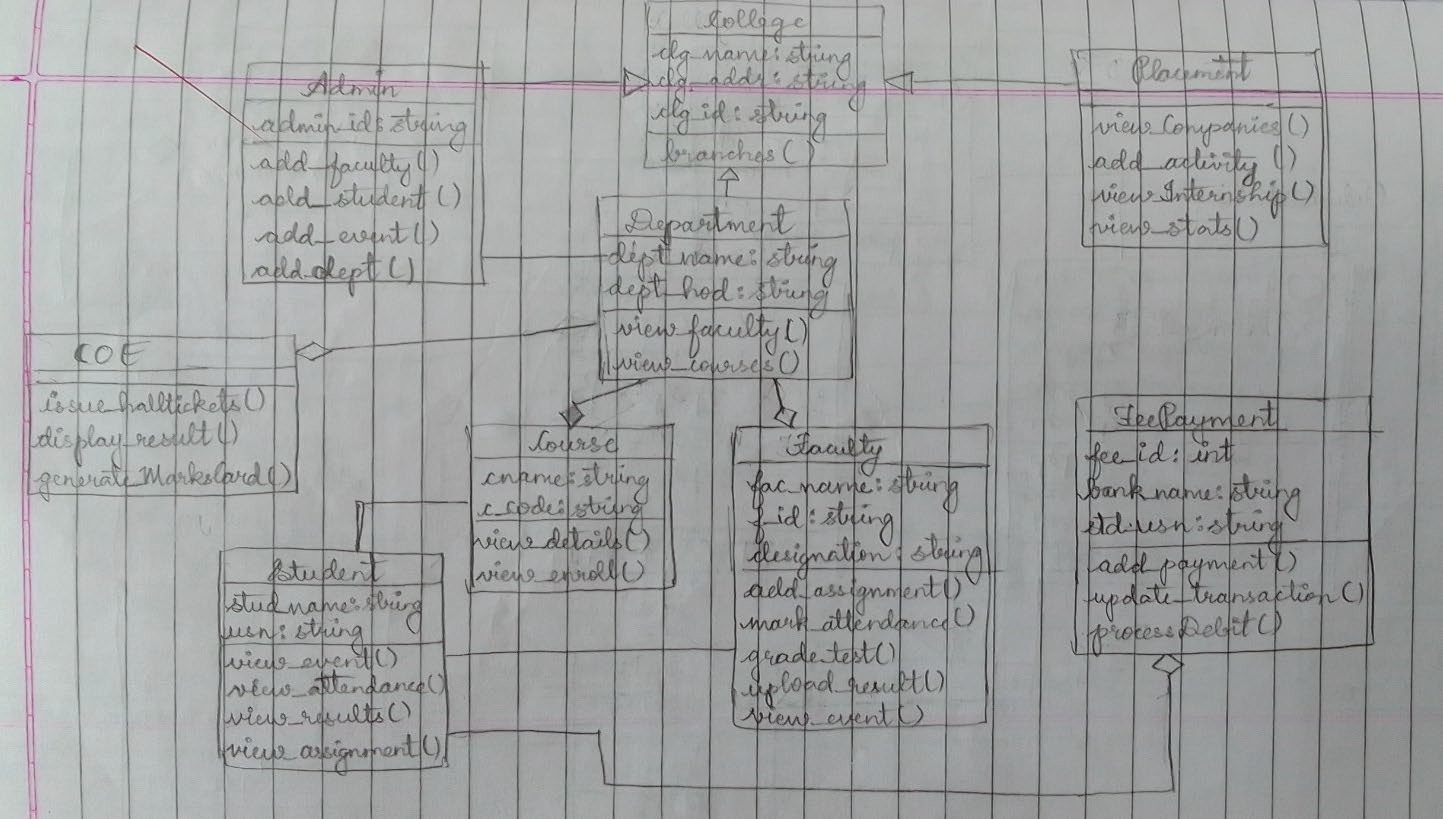 College
clg_name: string
clg_addr: string
clg_id: string
branches()
Admin
admin_id: string
add_faculty()
add_student()
add_event()
add_dept()
Placement
view Companies()
add_activity()
view Internship()
view_stats()
Department
dept_name: string
dept_hod: string
view_faculty()
view_courses()
COE
issue_halltickets()
display_result()
generate_MarksCard()
Course
cname: string
c_code: string
view details()
view_enroll()
Faculty
fac_name: string
f_id: string
designation: string
add_assignment()
mark_attendance()
grade_test()
upload_result()
view_event()
FeePayment
fee_id: int
bank_name: string
std_usn: string
add_payment()
update_transaction()
processDebit()
Student
stud_name: string
usn: string
view_event()
view_attendance()
view_results()
view_assignment()